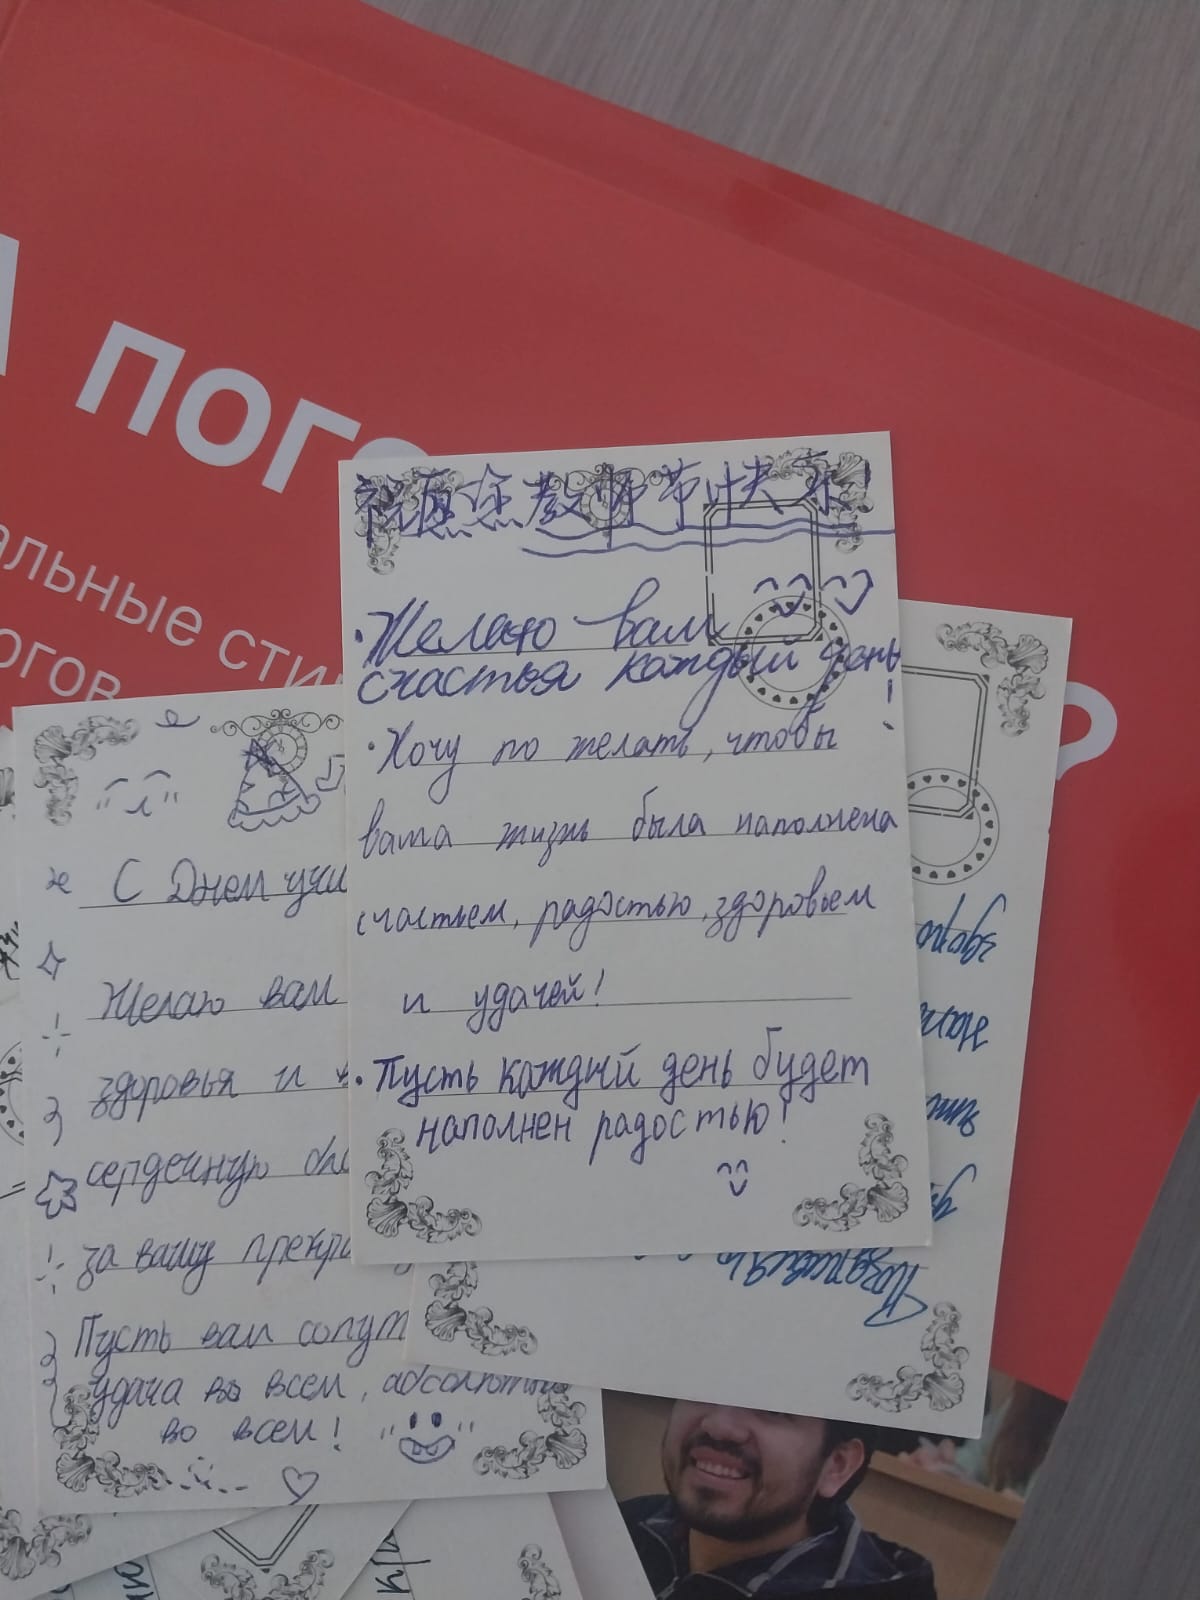 ПОГО
альные сти
огов
?
祝愿您教师节快乐!
• Желаю вам
счастья каждый день!
• Хочу по желать, чтобы
ваша жизнь была наполнена
счастьем, радостью, здоровьем
и удачей!
• Пусть каждый день будет
наполнен радостью!
С Днем учи
Желаю вам
здоровья и
сердечную бла
за вашу прекра
Пусть вам сопут
удача во всем, абсолютно
во всем!
здоро
Поздравля